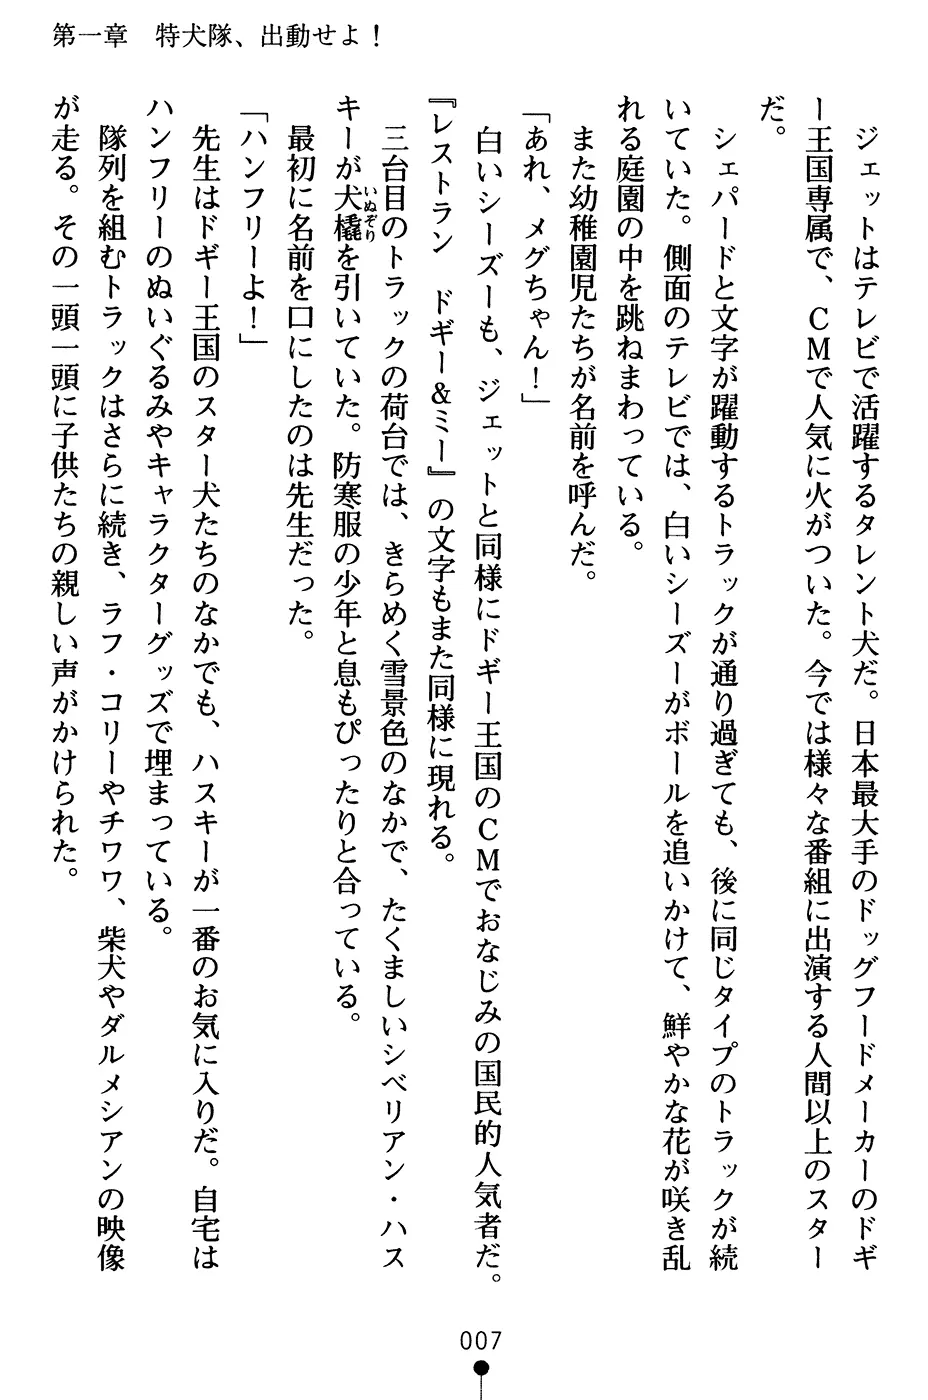 第一章　特犬隊、出動せよ！
　ジェットはテレビで活躍するタレント犬だ。日本最大手のドッグフードメーカーのドギ
ー王国専属で、ＣＭで人気に火がついた。今では様々な番組に出演する人間以上のスター
だ。
　シェパードと文字が躍動するトラックが通り過ぎても、後に同じタイプのトラックが続
いていた。側面のテレビでは、白いシーズーがボールを追いかけて、鮮やかな花が咲き乱
れる庭園の中を跳ねまわっている。
　また幼稚園児たちが名前を呼んだ。
「あれ、メグちゃん！」
　白いシーズーも、ジェットと同様にドギー王国のＣＭでおなじみの国民的人気者だ。
『レストラン　ドギー＆ミー』の文字もまた同様に現れる。
　三台目のトラックの荷台では、きらめく雪景色のなかで、たくましいシベリアン・ハス
キーが犬橇いぬぞりを引いていた。防寒服の少年と息もぴったりと合っている。
　最初に名前を口にしたのは先生だった。
「ハンフリーよ！」
　先生はドギー王国のスター犬たちのなかでも、ハスキーが一番のお気に入りだ。自宅は
ハンフリーのぬいぐるみやキャラクターグッズで埋まっている。
　隊列を組むトラックはさらに続き、ラフ・コリーやチワワ、柴犬やダルメシアンの映像
が走る。その一頭一頭に子供たちの親しい声がかけられた。
007